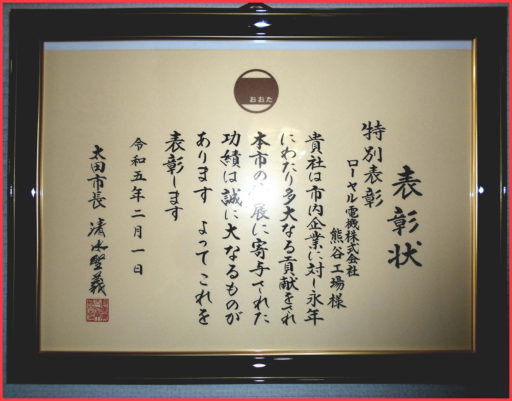 おおた
表彰状
特別表彰
ローヤル電機株式会社
熊谷工場様
貴社は市内企業に対し永年
にわたり多大なる貢献をされ
本市の発展に寄与された
功績は誠に大なるものが
あります よってこれを
表彰します
令和五年二月一日
太田市長 清水聖義